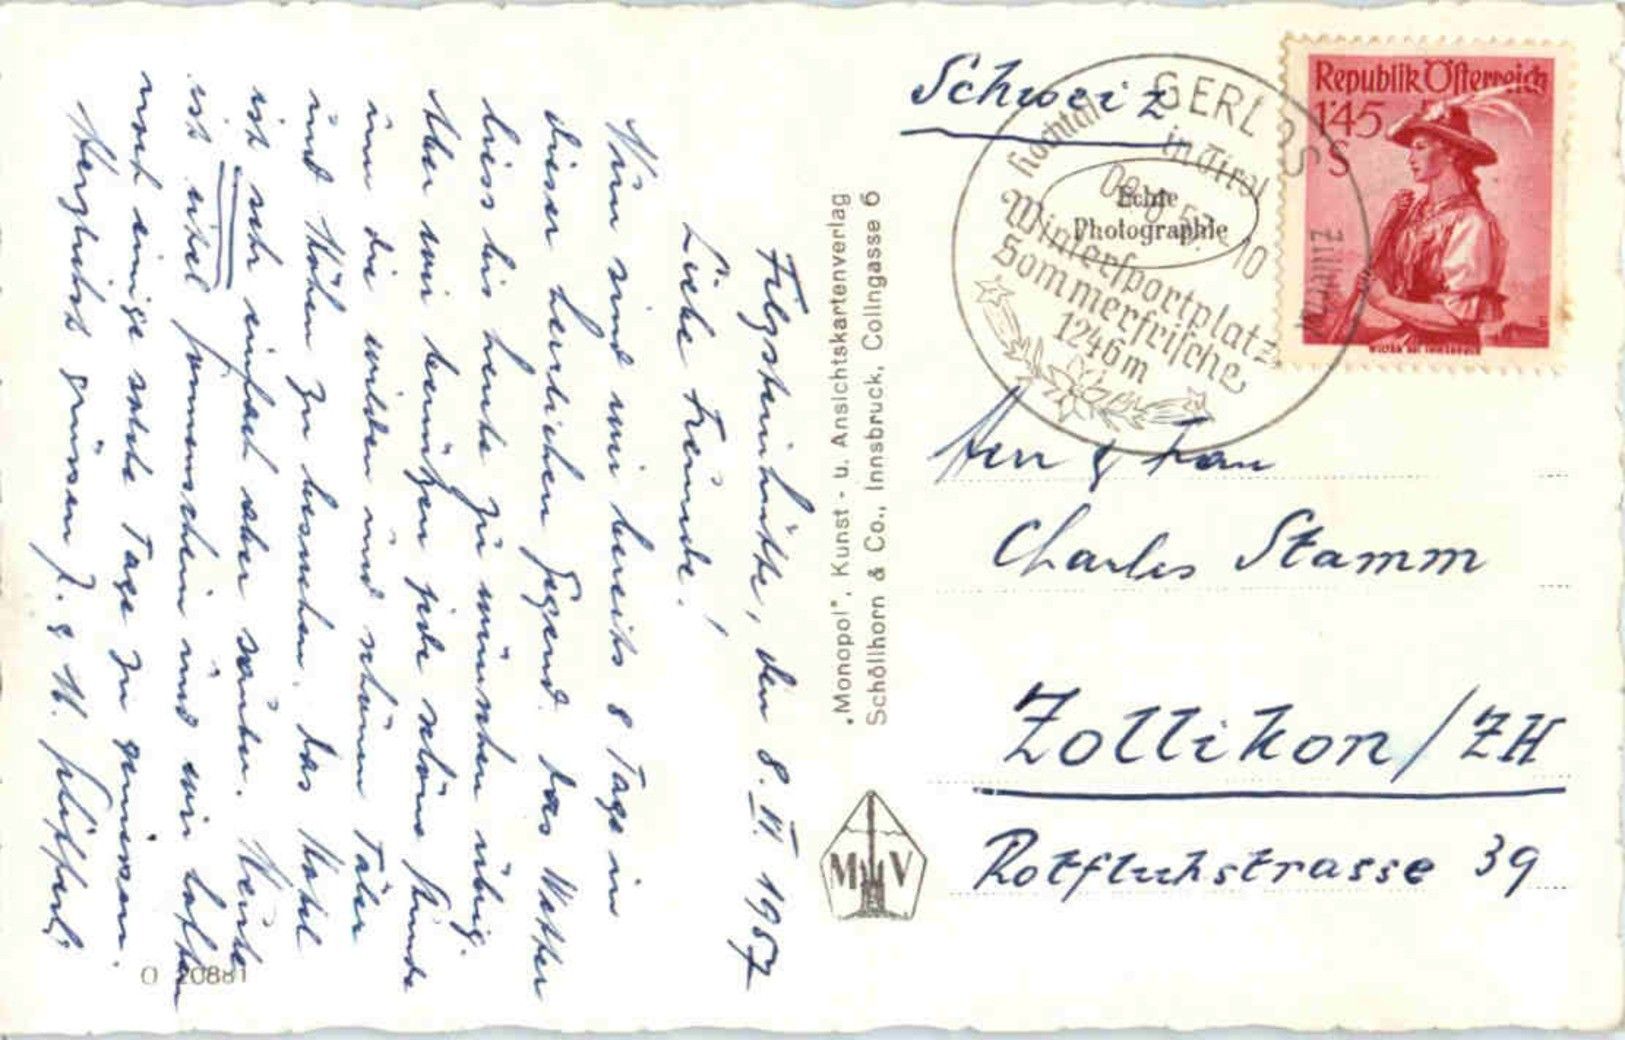 Filzsteinhütte, den 8. VI. 1957
Liebe Freunde!
Nun sind wir bereits 8 Tage in
dieser herrlichen Gegend. Das Wetter
liess bis heute zu wünschen übrig.
Aber wir benützen jede schöne Stunde
um die wilden und schönen Täler
und Höhen zu besuchen. Das Hotel
ist sehr einfach aber sauber. Heute
ist eitel Sonnenschein und wir hoffen
noch einige solche Tage zu geniessen.
Herzlichst grüssen J. & H.
O 20881
„Monopol", Kunst- u. Ansichtskartenverlag
Schöllhorn & Co., Innsbruck, Collngasse 6
M V
Schweiz
Echte
Photographie
GERLOS
in Tirol
Hochtal
Zillertal
Wintersportplatz
Sommerfrische
1246m
Republik Österreich
1'45
S
Herr & Frau
Charles Stamm
Zollikon/ZH
Rotfluhstrasse 39